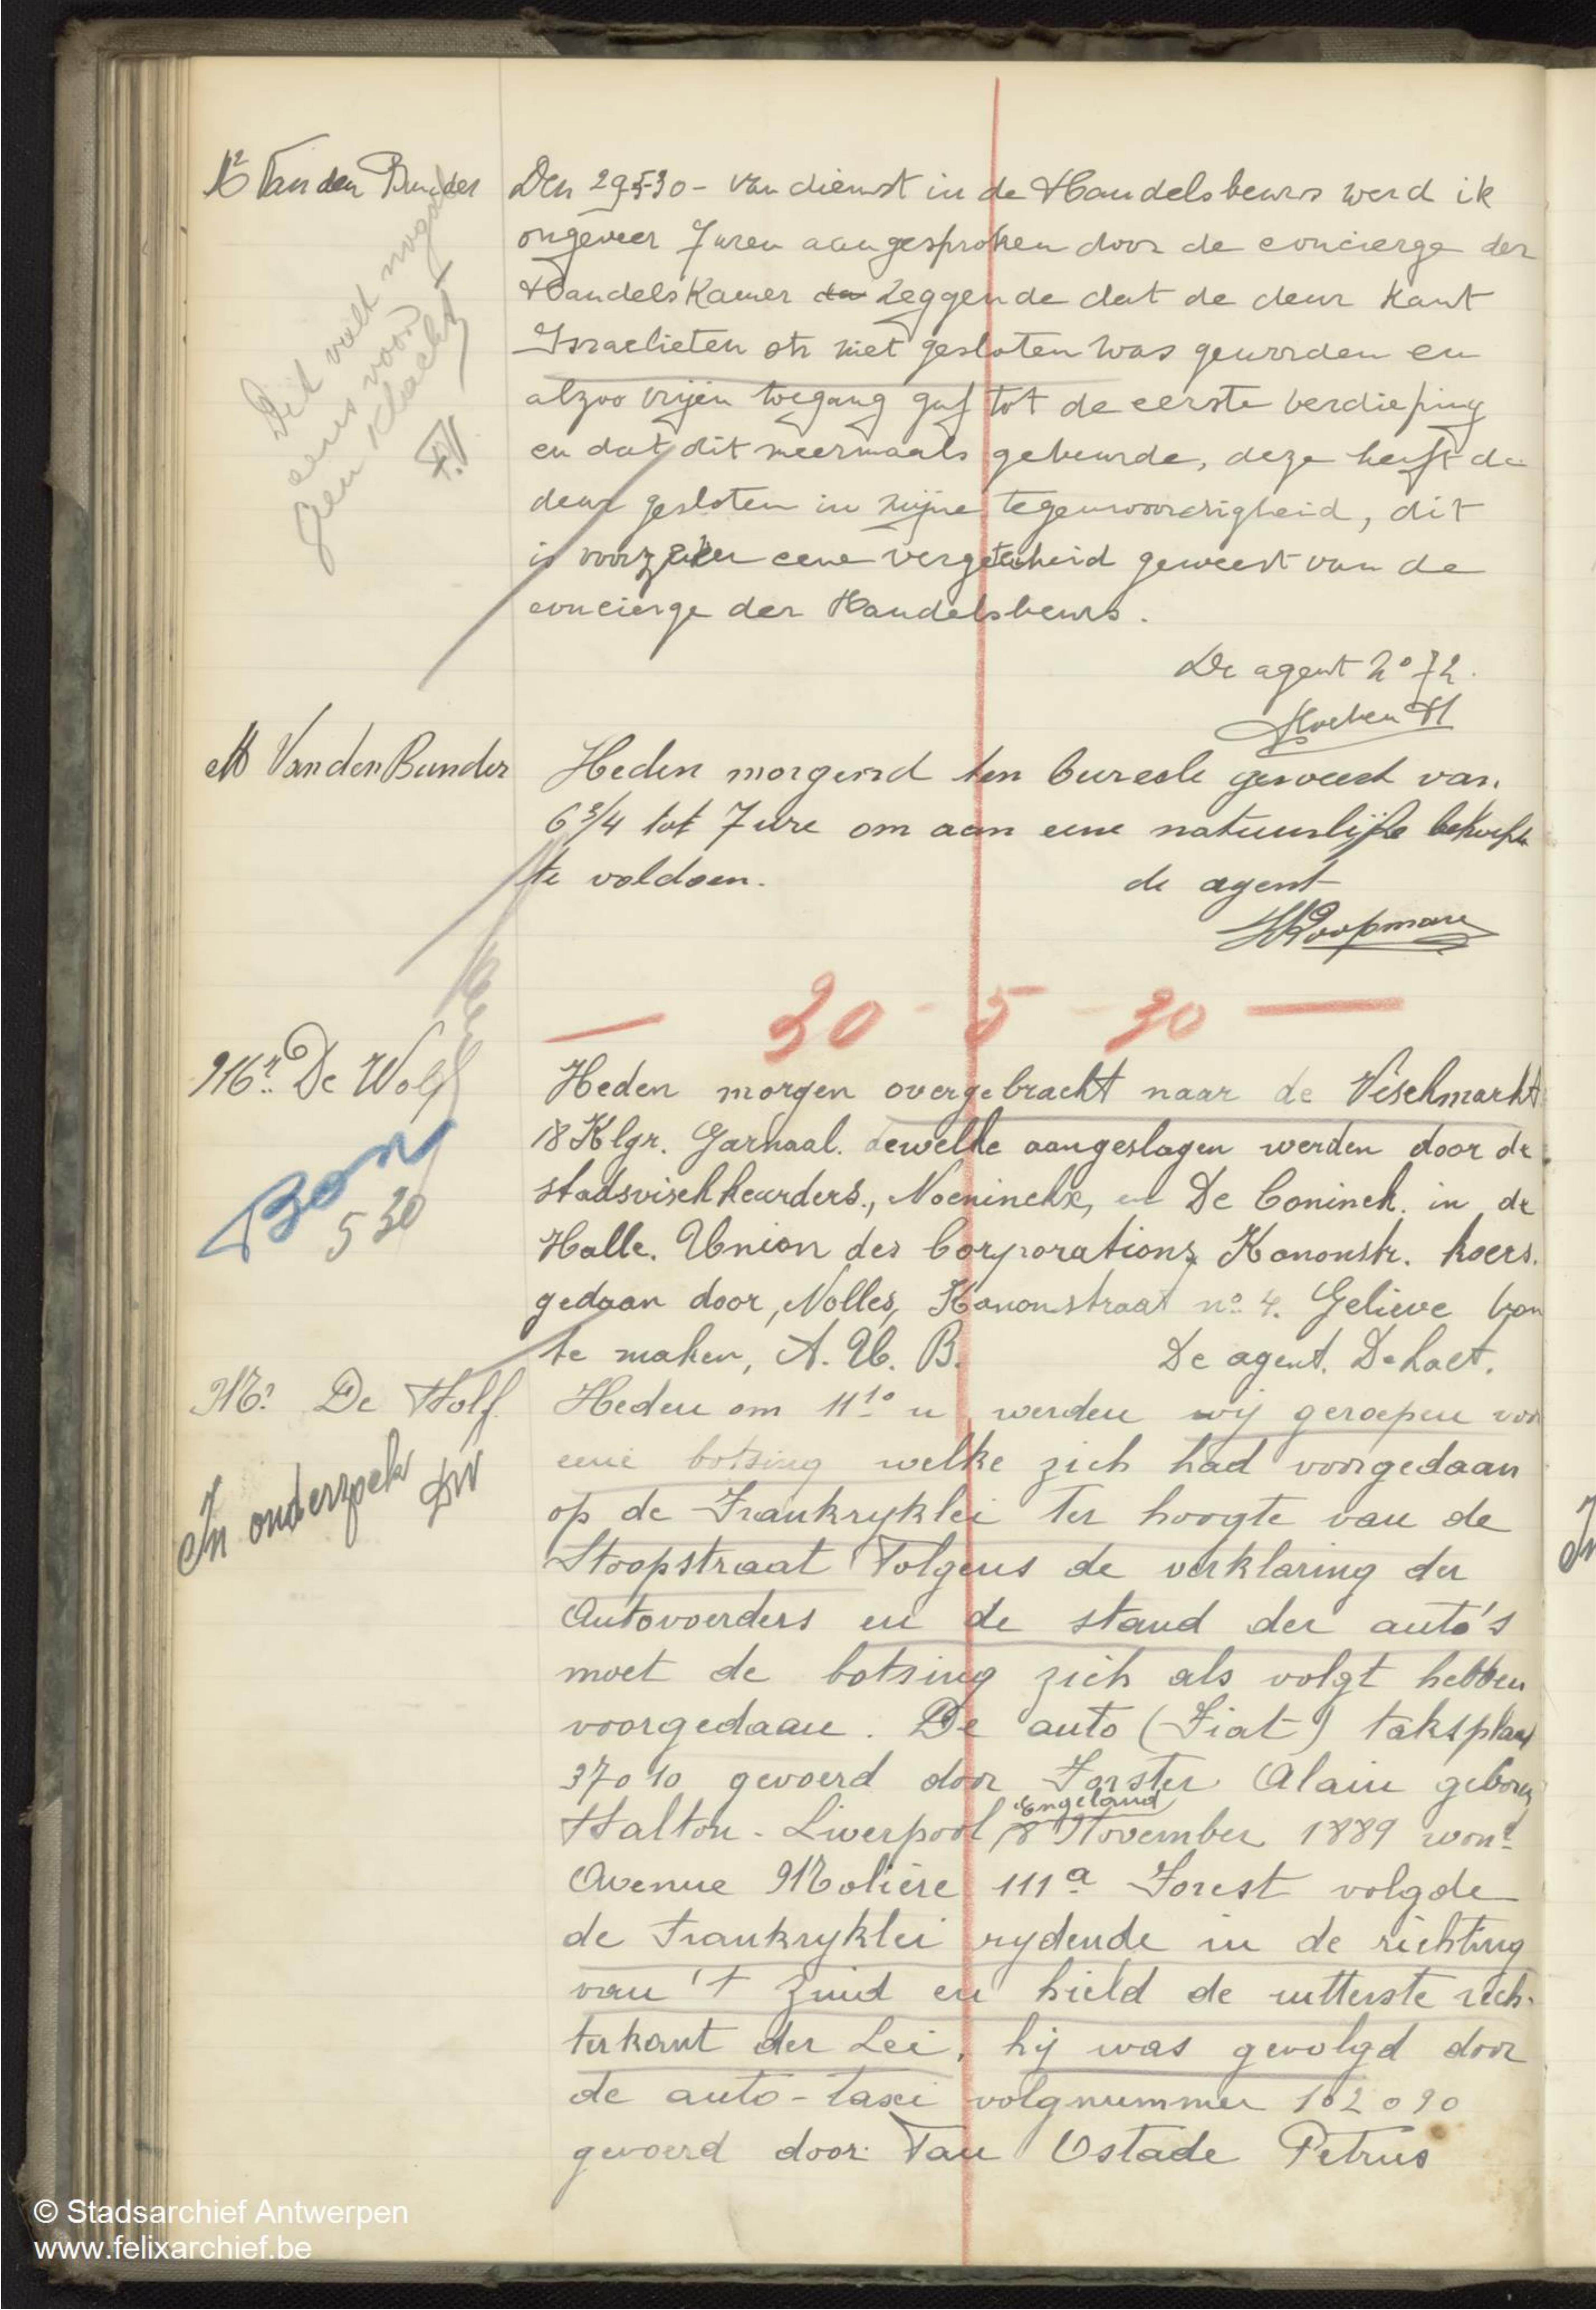 Mr Van den Bunder
Den 29-5-30 - van dienst in de Handelsbeurs werd ik
ongeveer 7 uren aangesproken door de concierge der
Handelskamer zeggende dat de deur kant
Israelieten str niet gesloten was geworden en
alzoo vrijen toegang gaf tot de eerste verdieping
en dat dit meermaals gebeurde, deze heeft de
deur gesloten in mijne tegenwoordigheid, dit
is voorzeker eene vergetenheid geweest van de
concierge der Handelsbeurs.
Dit valt nogal
eens voor
geen klacht
F.V
De agent No 72.
M Van den Bunder
Heden morgend ten bureele geweest van
6 3/4 tot 7 ure om aan eene natuurlijke behoefte
te voldoen.
de agent
Koopman
— 30 - 5 - 30 —
Mr. De Wolf
Bon
5 30
Heden morgen overgebracht naar de Vischmarkt
18 Klgr. Garnaal. dewelke aangeslagen werden door de
stadsvischkeurders, Noeninckx, en De Coninck. in de
Halle. Union des Corporations, Kanonstr. koers.
gedaan door, Nolles, Kanonstraat no 4. Gelieve bon
te maken, A. U. B.
De agent. Dehaet.
Mr. De Wolf
In onderzoek
DW
Heden om 11 10 u werden wij geroepen voor
eene botsing welke zich had voorgedaan
op de Frankryklei ter hoogte van de
Stoopstraat Volgens de verklaring der
Autovoerders en de stand der auto's
moet de botsing zich als volgt hebben
voorgedaan. De auto (Fiat) taksplaat
37010 gevoerd door Forster Alain geboren
Halton - Liverpool Engeland 8 November 1889 wont
Avenue Molière 111a Forest volgde
de Frankryklei rydende in de richting
van 't Zuid en hield de uitterste rech-
terkant der Lei, hij was gevolgd door
de auto-taxi volgnummer 102090
gevoerd door Van Ostade Petrus
© Stadsarchief Antwerpen
www.felixarchief.be